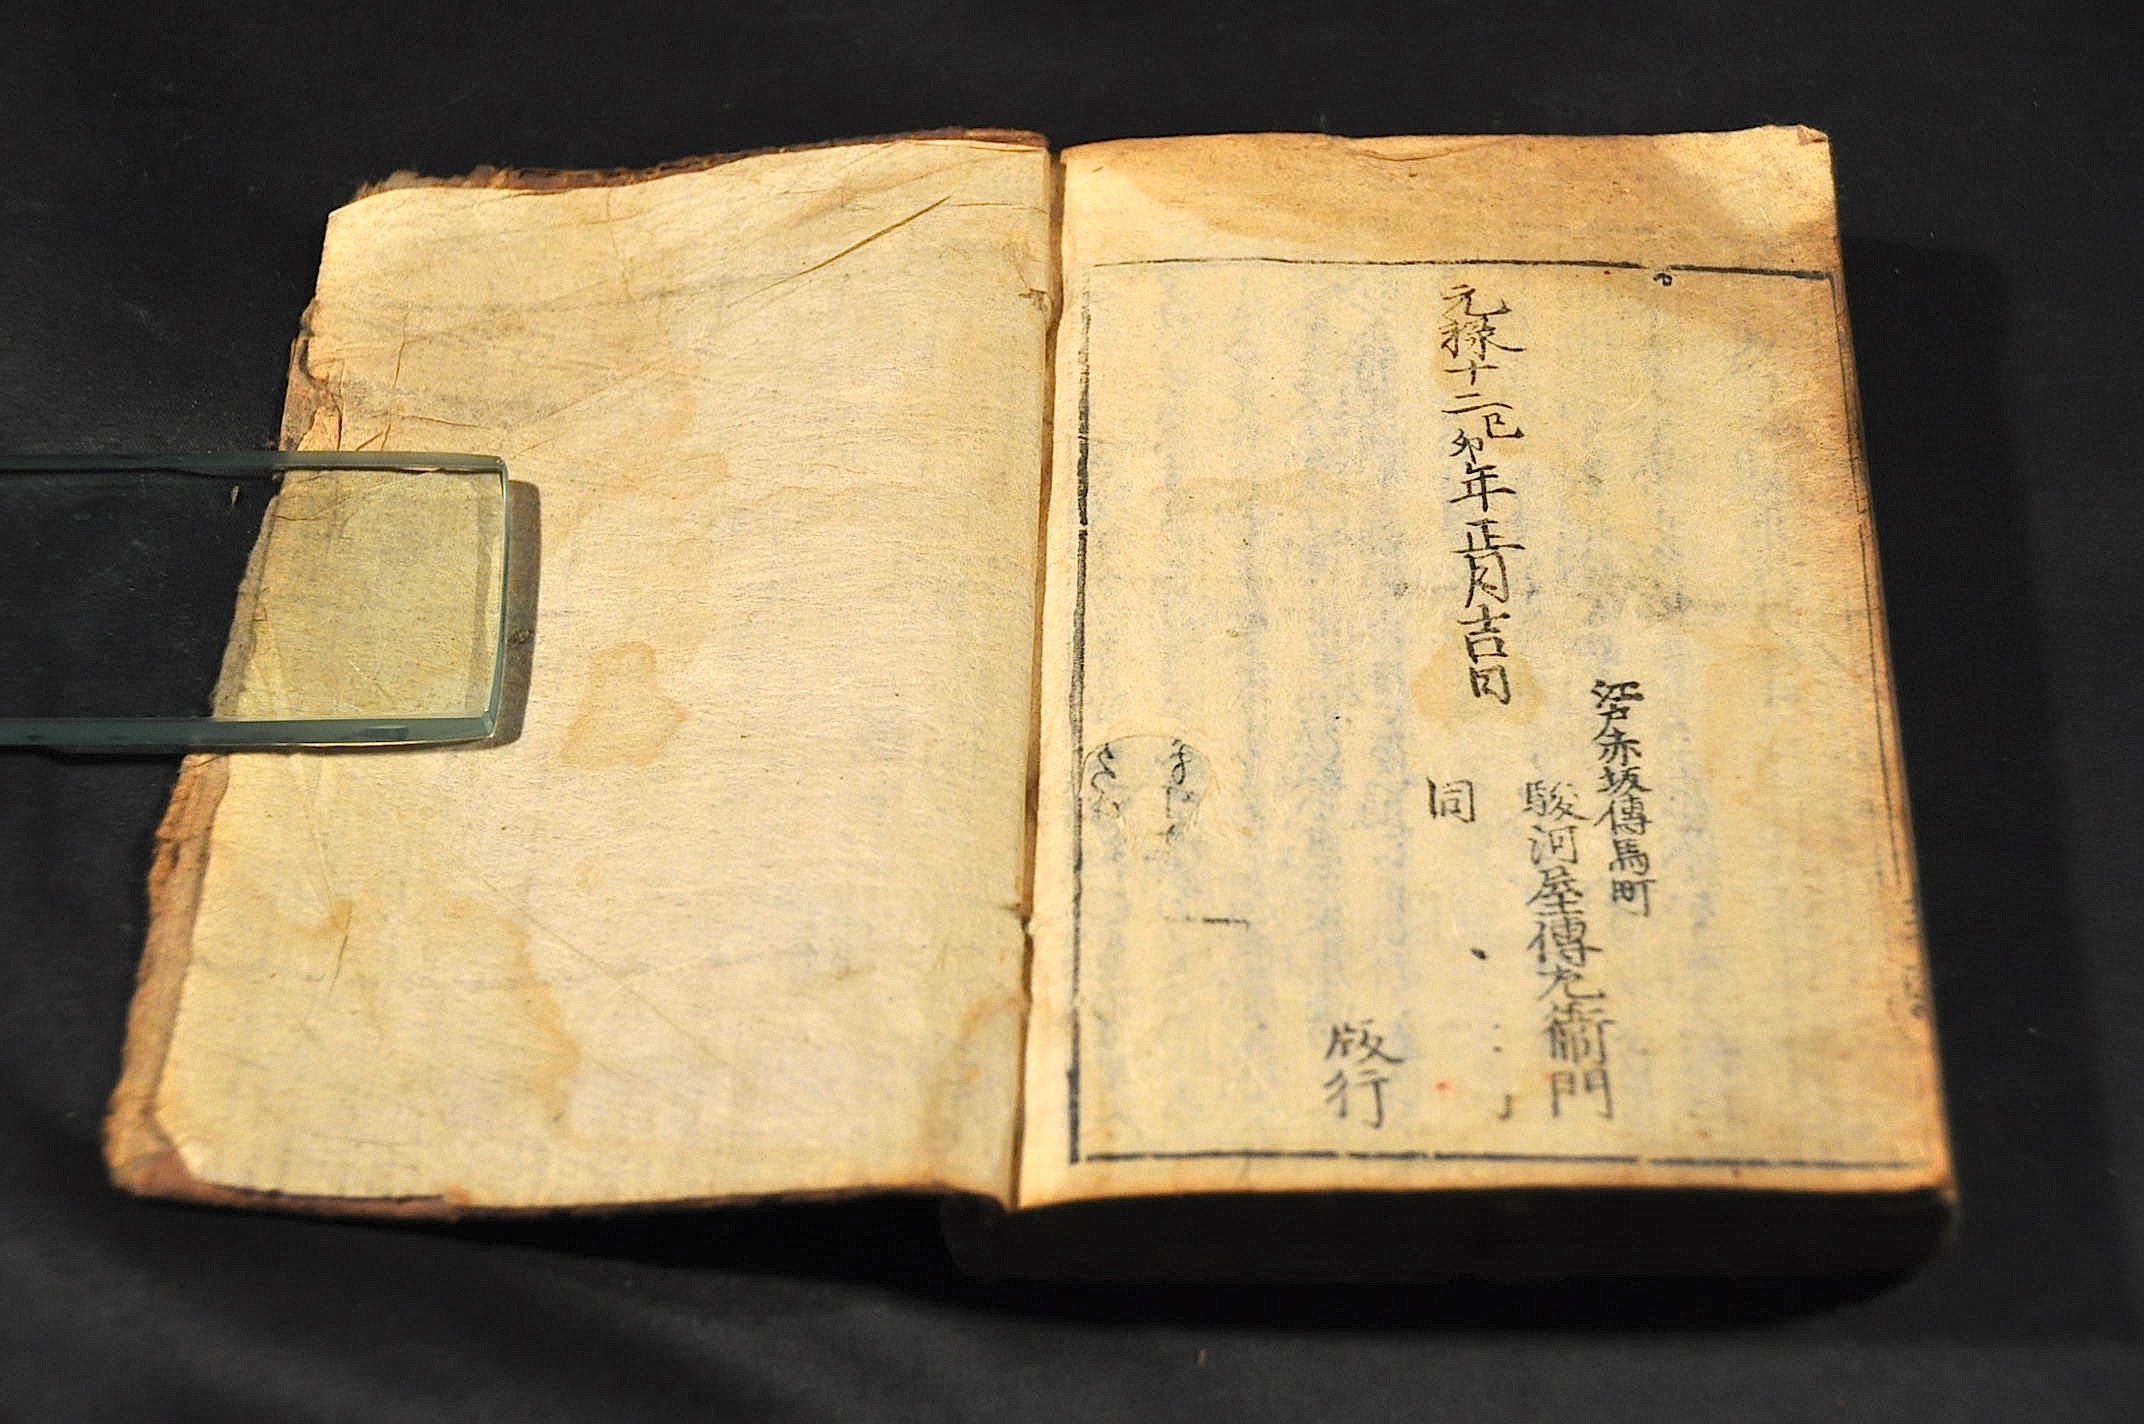 江戸赤坂傳馬町
駿河屋傳左衛門
元禄十二己卯年正月吉日
同
版行